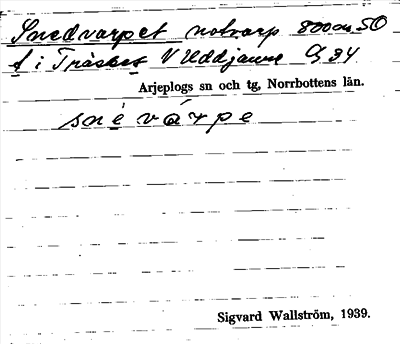 Snedvarpet notvarp 800 m SO
f i Träsket V Uddjaure G 34
Arjeplogs sn och tg, Norrbottens län.
snè várpe
Sigvard Wallström, 1939.